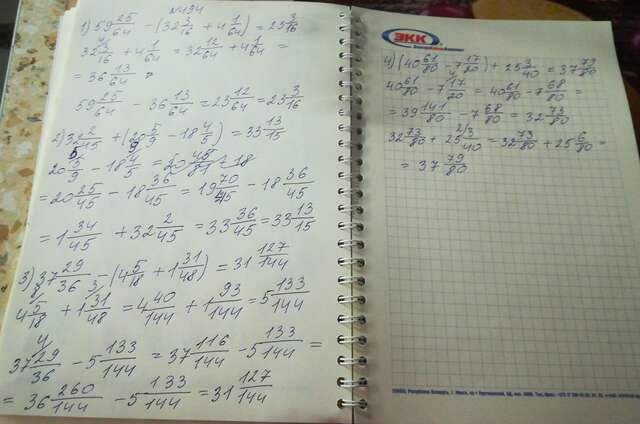 №494
1) 59 25/64 - (32 3/16 + 4 1/64) = 23 3/16
32 3/16 + 4 1/64 = 32 12/64 + 4 1/64 =
= 36 13/64
59 25/64 - 36 13/64 = 23 12/64 = 23 3/16
2) 32 2/45 + (20 5/9 - 18 4/5) = 33 13/15
20 5/9 - 18 4/5 =
= 20 25/45 - 18 36/45 = 19 70/45 - 18 36/45
= 1 34/45 + 32 2/45 = 33 36/45 = 33 13/15
3) 37 29/36 - (4 5/18 + 1 31/48) = 31 127/144
4 5/18 + 1 31/48 = 4 40/144 + 1 93/144 = 5 133/144
37 29/36 - 5 133/144 = 37 116/144 - 5 133/144 =
= 36 260/144 - 5 133/144 = 31 127/144
ЭКК
4) (40 61/80 - 7 17/20) + 25 3/40 = 37 79/80
40 61/80 - 7 17/20 = 40 61/80 - 7 68/80 =
= 39 141/80 - 7 68/80 = 32 73/80
32 73/80 + 25 3/40 = 32 73/80 + 25 6/80 =
= 37 79/80